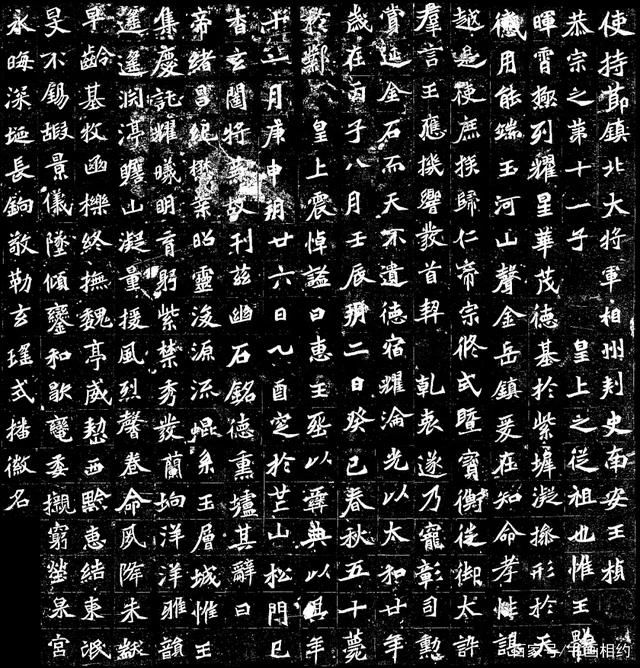 使持節鎮北大將軍相州刺史南安王楨
恭宗之第十一子 皇上之從祖也惟王體
暉霄極列耀星華茂德基於紫墀凝操形於天
感用能端玉河山聲金岳鎮爰在知命孝性諶
越是使庶族歸仁帝宗攸式暨寶衡徙御大訊
羣言王應機響發首契 乾衷遂乃寵彰司勳
賞延金石而天不遺德宿耀淪光以太和廿年
歲在丙子八月壬辰朔二日癸巳春秋五十薨
於鄴 皇上震悼謚曰惠王葬以彝典以其年
十一月庚申朔廿六日乙酉窆於芒山松門已
杳玄闥將蕪故刊茲幽石銘德熏壚其辭曰
帝緒昌紀懋業昭靈浚源流崐系玉層城惟王
集慶託耀曦明育躬紫禁秀發蘭坰洋洋雅韻
遙遙淵渟瞻山凝量援風烈馨卷命夙降朱黻
早齡基牧函櫟終撫魏亭威愬西黔惠結東氓
旻不錫嘏景儀墜傾鑾和歇轡委櫬窮塋泉宮
永晦深埏長鐍敬勒玄瑤式播徽名
百家号/书画相约